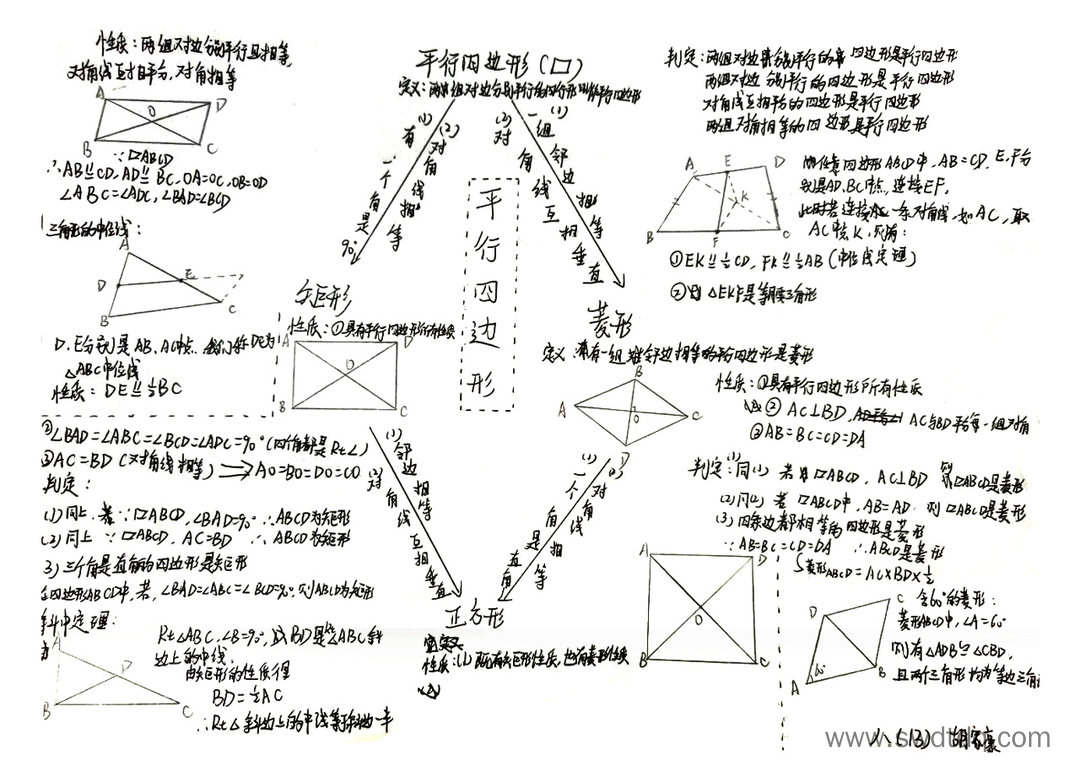 性质：两组对边分别平行且相等,
对角线互相平分，对角相等
A
D
O
B
C
∵▱ABCD
∴AB∥=CD, AD∥=BC, OA=OC, OB=OD
∠ABC=∠ADC, ∠BAD=∠BCD
三角形的中位线：
A
D
E
B
C
D、E分别是AB、AC中点，我们称DE为
△ABC中位线
性质：DE∥=½BC
平行四边形(▱)
定义：两组对边分别平行的四边形叫做平行四边形
(1)有一个角是90°
(2)对角线相等
(2)对角线互相垂直
(1)一组邻边相等
平行四边形
判定：两组对边分别平行的四边形是平行四边形
两组对边分别平行的四边形是平行四边形
对角线互相平分的四边形是平行四边形
两组对角相等的四边形是平行四边形
A
E
D
K
B
F
C
四边形ABCD中, AB=CD, E、F分
别是AD、BC中点，连接EF,
此时若连接一条对角线，如AC，取
AC中点K，则有：
①EK∥=½CD, FK∥=½AB(中位线定理)
②则△EKF是等腰三角形
矩形
性质：①具有平行四边形所有性质
A
D
O
B
C
②∠BAD=∠ABC=∠BCD=∠ADC=90°(四个角都是Rt∠)
③AC=BD(对角线相等)⟹AO=BO=DO=CO
判定：
(1)同上 若∵▱ABCD, ∠BAD=90° ∴ABCD为矩形
(2)同上 ∵▱ABCD, AC=BD ∴ABCD为矩形
3)三个角是直角的四边形是矩形
四边形ABCD中，若，∠BAD=∠ABC=∠BCD=90°，则ABCD为矩形
斜中定理：
A
D
B
C
Rt△ABC, ∠B=90°, BD是△ABC斜
边上的中线,
由矩形的性质得
BD=½AC
∴Rt△斜边上的中线等于斜边一半
(1)邻边相等
(2)对角线互相垂直
(1)一个角是直角
(2)对角线相等
菱形
定义：有一组邻边相等的平行四边形是菱形
B
A
O
C
D
性质：①具有平行四边形所有性质
②AC⊥BD, AC与BD平分每一组对角
③AB=BC=CD=DA
判定：(1)同(1) 若▱ABCD, AC⊥BD 则▱ABCD是菱形
(2)同(2) 若▱ABCD中, AB=AD 则▱ABCD是菱形
(3)四条边都相等的四边形是菱形
∵AB=BC=CD=DA ∴ABCD是菱形
S菱形ABCD=AC×BD×½
正方形
性质：(1)既有矩形性质，也有菱形性质
(2)
A
D
O
B
C
C
D
B
A
60°
含60°的菱形：
菱形ABCD中, ∠A=60°
则有△ADB≌△CBD,
且两个三角形均为等边三角形
八(13)